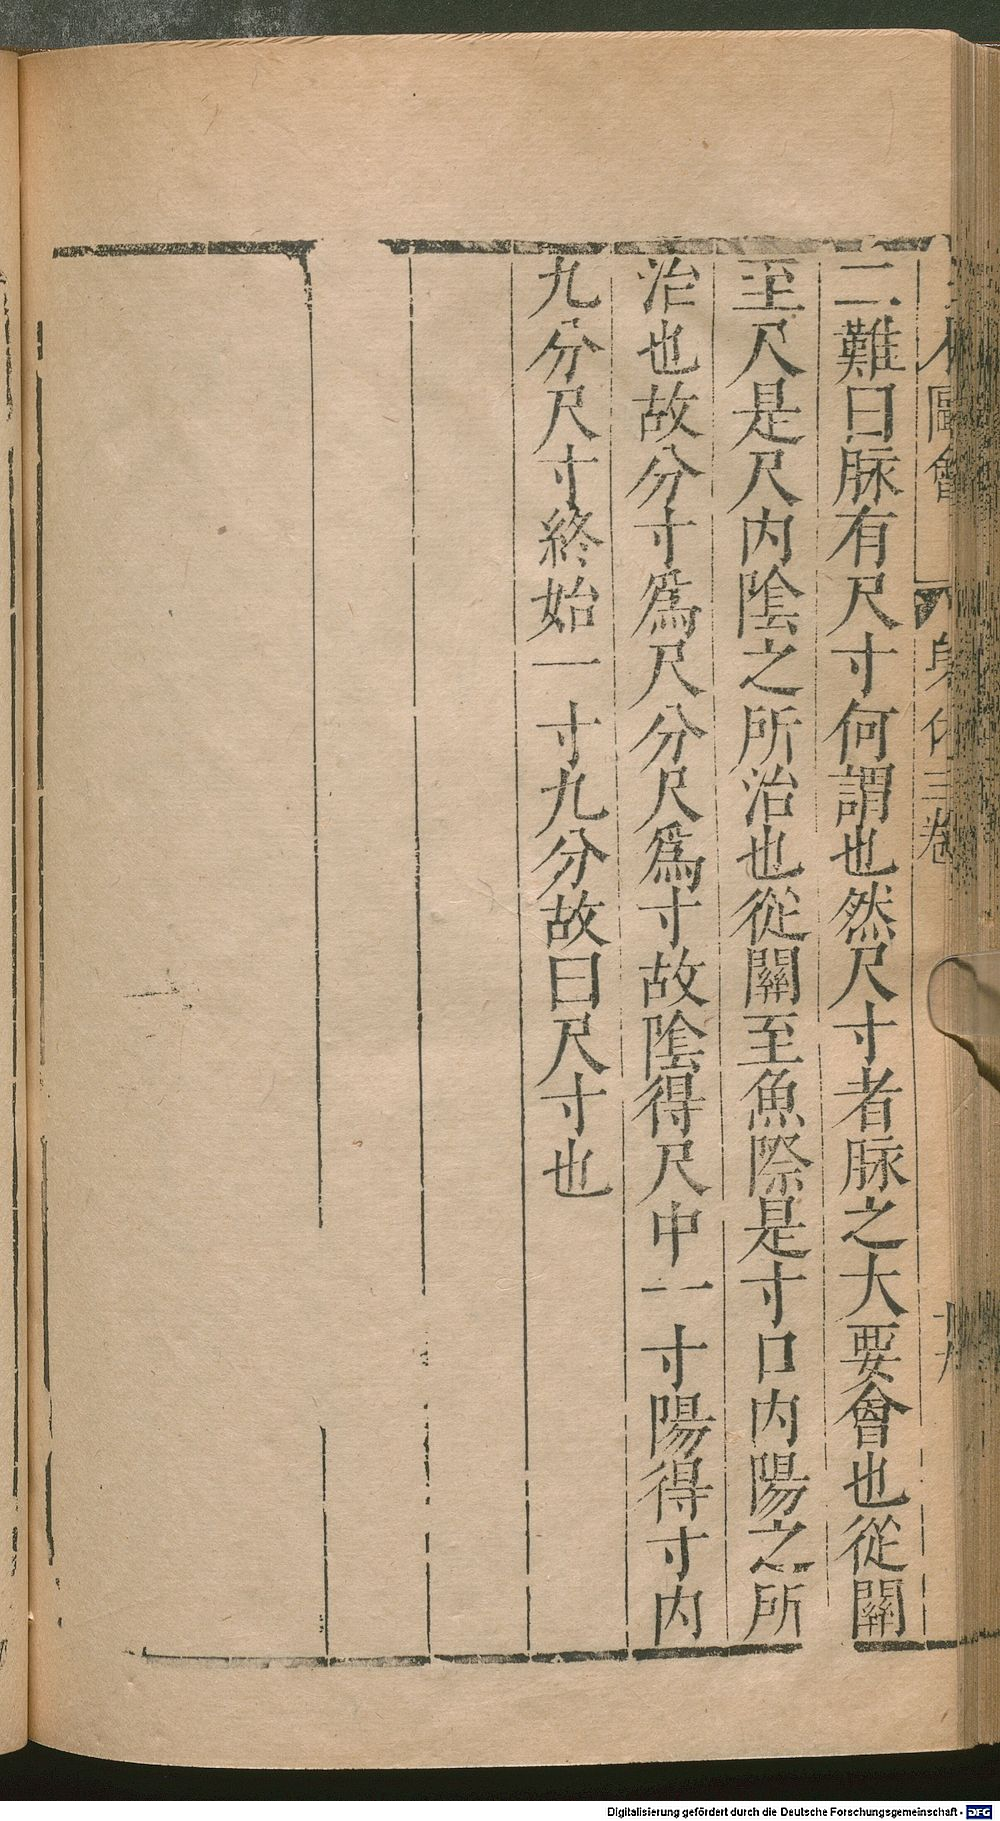 圖會 身体三卷
二難曰脉有尺寸何謂也然尺寸者脉之大要會也從關
至尺是尺内陰之所治也從關至魚際是寸口内陽之所
治也故分寸爲尺分尺爲寸故陰得尺中一寸陽得寸内
九分尺寸終始一寸九分故曰尺寸也
Digitalisierung gefördert durch die Deutsche Forschungsgemeinschaft - DFG